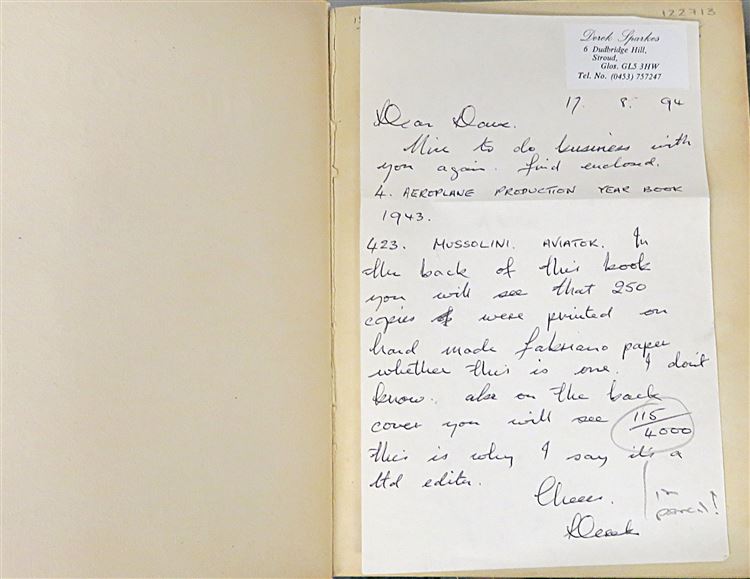 122713
Derek Sparkes
6 Dudbridge Hill,
Stroud,
Glos. GL5 3HW
Tel. No. (0453) 757247
17. 8. 94
Dear Dave.
Nice to do business with
you again. find enclosed.
4. AEROPLANE PRODUCTION YEAR BOOK
1943.
423. MUSSOLINI. AVIATOR. In
the back of this book
you will see that 250
copies were printed on
hand made fabriano paper
whether this is one. I don't
know. also on the back
cover you will see 115/4000
this is why I say it's a
ltd editn.
Cheers.
Derek
in
pencil!